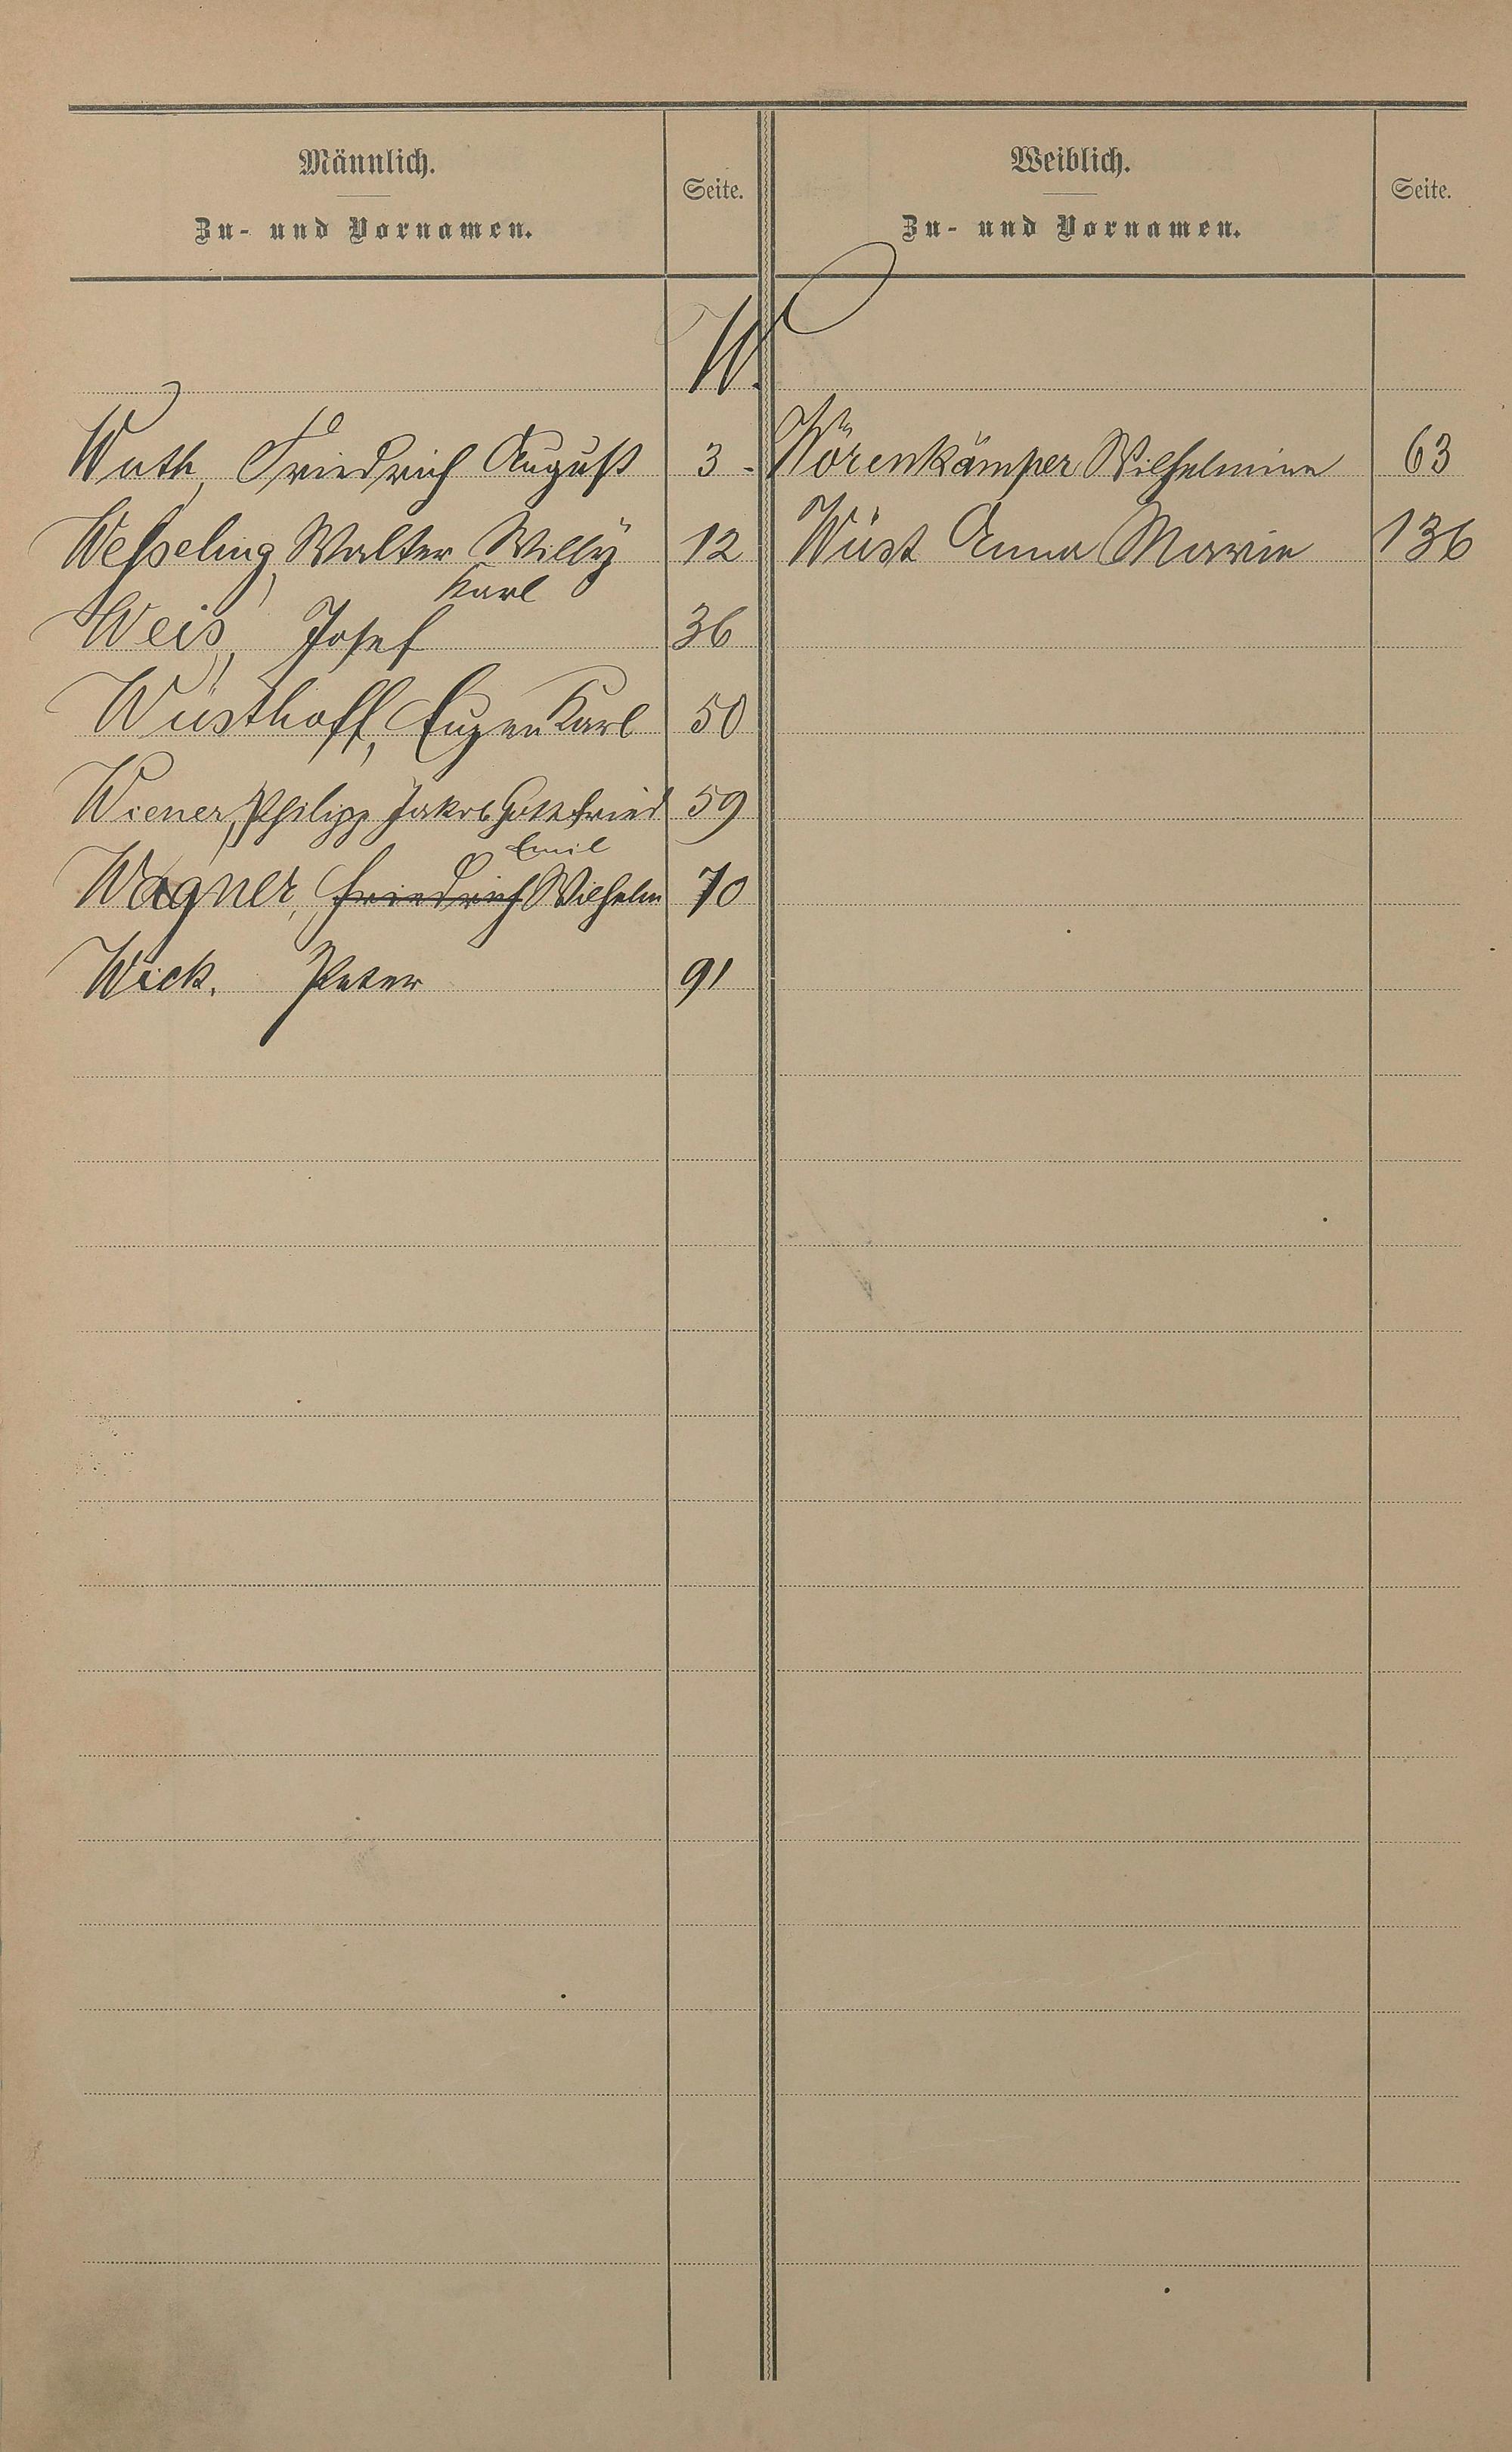 Männlich.
Zu- und Vornamen.
Seite.
Weiblich.
Zu- und Vornamen.
Seite.
W.
Wuth, Friedrich August 3 -
Wörenkämper Wilhelmine 63
Wesseling, Walter Willy 12
Wüst Anna Maria 136
Karl
Weis, Josef 36
Wüsthoff, Eugen Karl 50
Wiener, Philipp Jakob Gottfried 59
Emil
Wagner, Friedrich Wilhelm 70
Wick. Peter 91